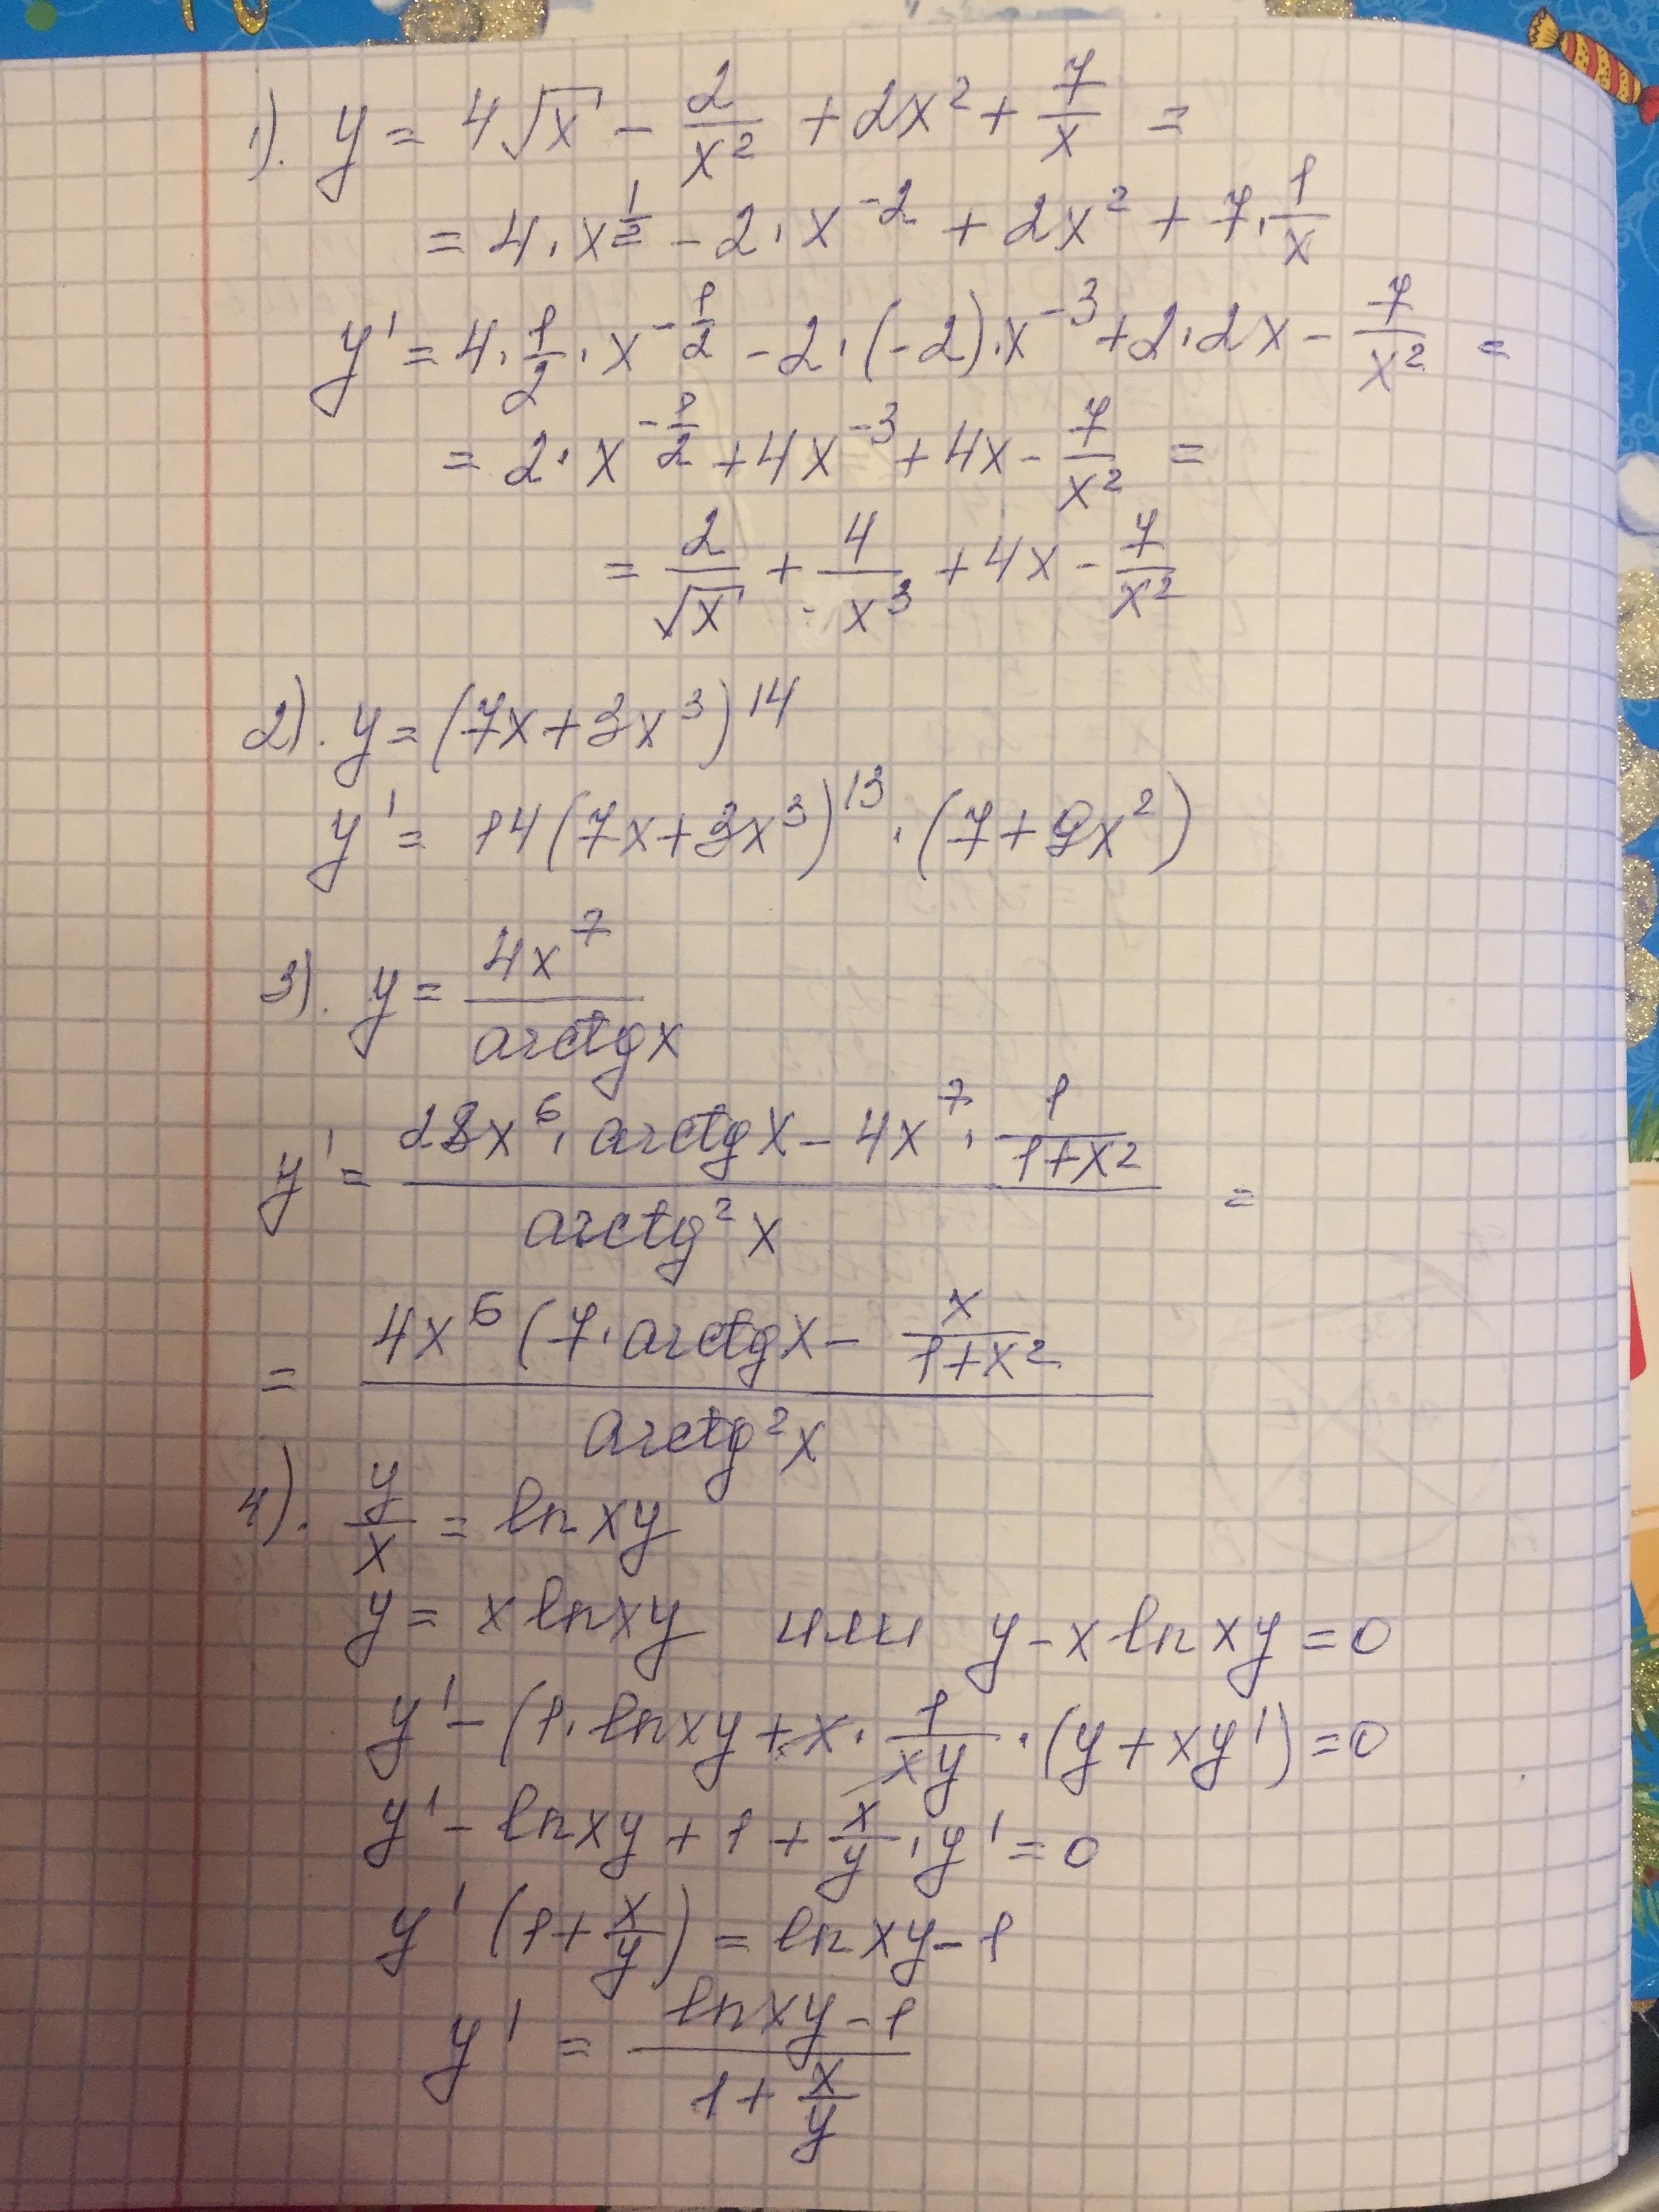 1). y = 4√x - 2/x² + 2x² + 7/x =
= 4·x^(1/2) - 2·x^(-2) + 2x² + 7·1/x
y' = 4·1/2·x^(-1/2) - 2·(-2)·x^(-3) + 2·2x - 7/x² =
= 2·x^(-1/2) + 4x^(-3) + 4x - 7/x² =
= 2/√x + 4/x³ + 4x - 7/x²
2). y = (7x + 3x³)^14
y' = 14(7x + 3x³)^13 · (7 + 9x²)
3). y = 4x^7/arctgx
y' = (28x^6 · arctgx - 4x^7 · 1/(1+x²))/arctg²x =
= 4x^6 (7·arctgx - x/(1+x²)/arctg²x
4). y/x = ln xy
y = x ln xy или y - x ln xy = 0
y' - (1·ln xy + x · 1/xy · (y + xy') = 0
y' - ln xy + 1 + x/y · y' = 0
y' (1 + x/y) = ln xy - 1
y' = (ln xy - 1)/(1 + x/y)